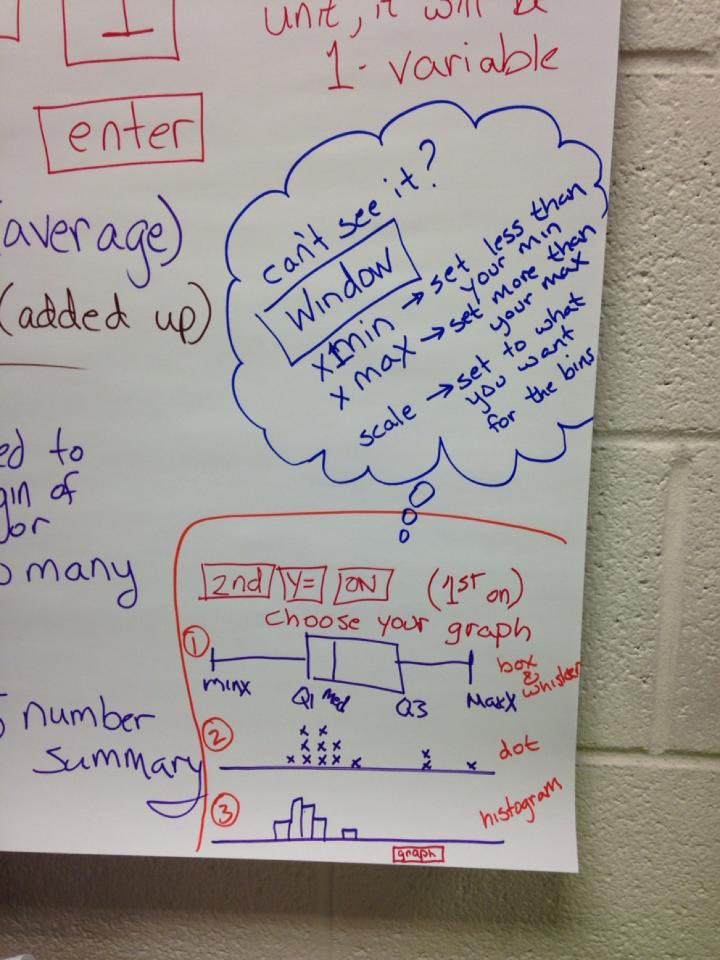 1
unit, it will be
1-variable
enter
(average)
(added up)
can't see it?
Window
xmin → set less than
your min
x max → set more than
your max
scale → set to what
you want
for the bins
ed to
gin of
or
many
5 number
summary
2nd Y= ON (1st on)
choose your graph
1
box
&
whisker
minx Q1 Med Q3 MaxX
2
dot
3
histogram
graph